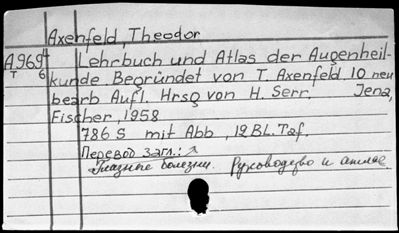 Axenfeld, Theodor
A969 Lehrbuch und Atlas der Augenheil-
T 6 kunde. Begründet von T. Axenfeld. 10 neu
bearb Aufl. Hrsg von H. Serr. Jena,
Fischer, 1958
786 S mit Abb, 12 BL. Taf.
Перевод загл.:
Глазные болезни. Руководство и атлас.